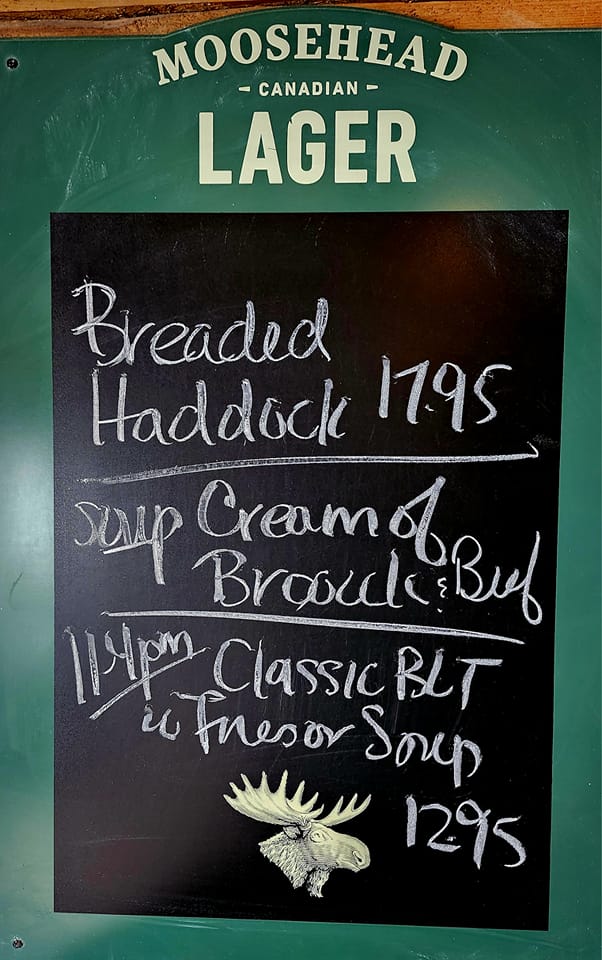 MOOSEHEAD
- CANADIAN -
LAGER
Breaded
Haddock 17.95
soup Cream of
& Beef
11-4pm Classic BLT
w Fries or Soup
12.95